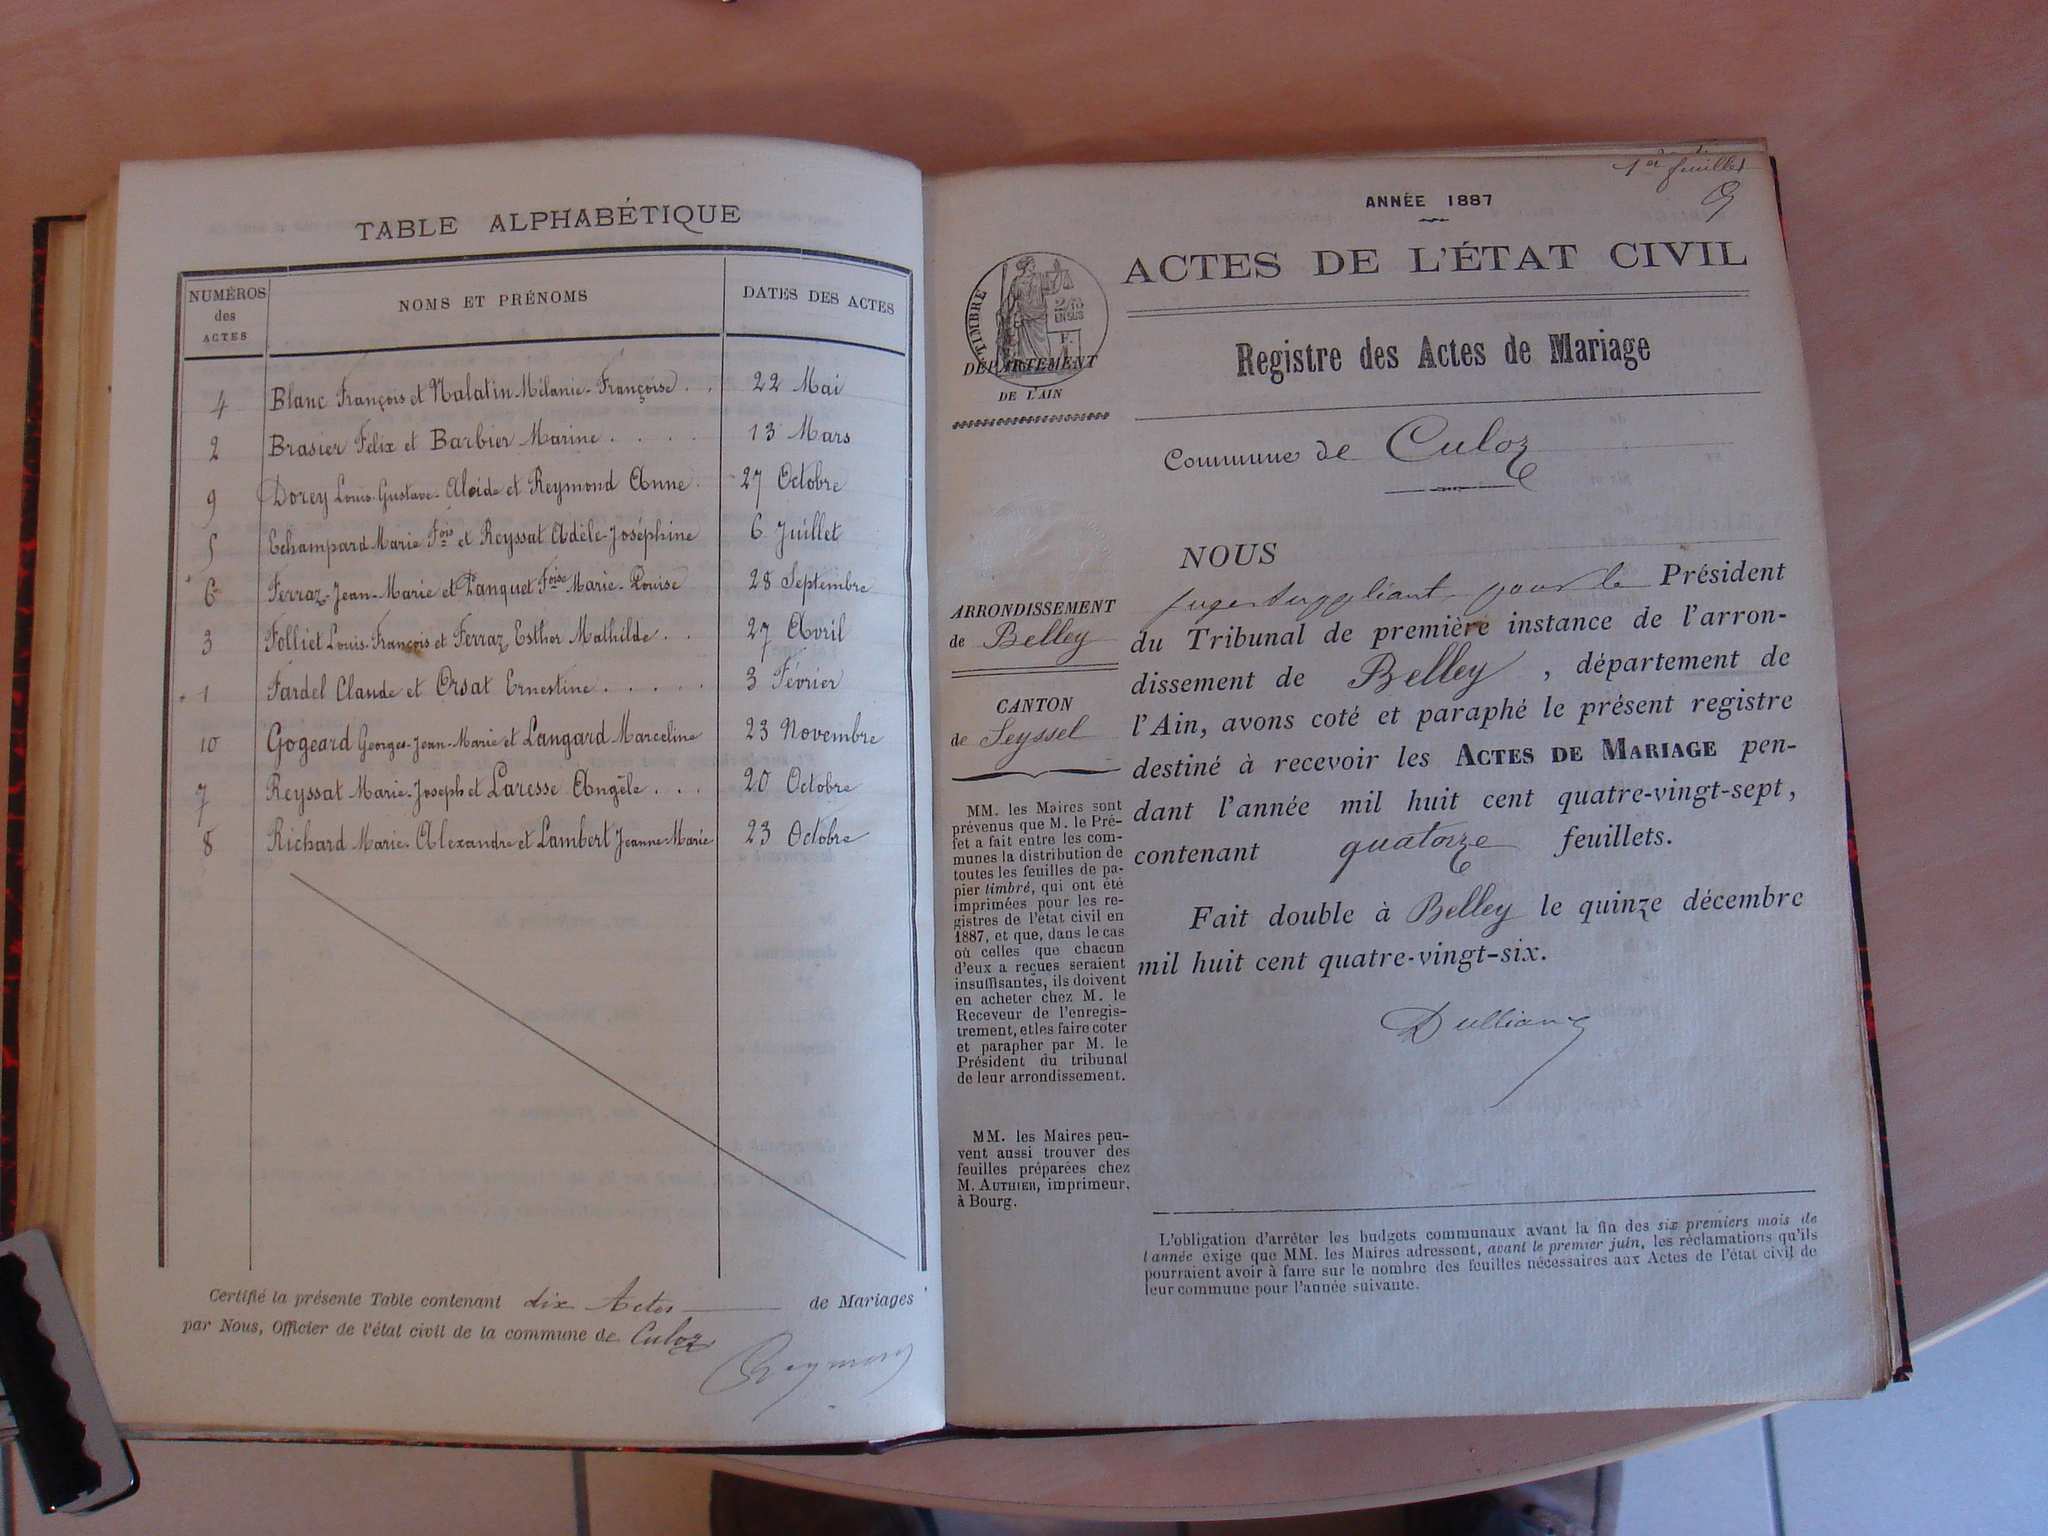 TABLE ALPHABÉTIQUE
NUMÉROS des ACTES NOMS ET PRÉNOMS DATES DES ACTES
4 Blanc François et Nalatin Mélanie-Françoise . . 22 Mai
2 Brasier Félix et Barbier Marine . . . . 13 Mars
9 Dorey Louis-Gustave-Alcide et Reymond Anne . 27 Octobre
5 Echampard Marie Fois et Reyssat Adèle-Joséphine 6 Juillet
6 Ferraz-Jean-Marie et Panquet Foise Marie-Louise 28 Septembre
3 Folliet Louis-François et Ferraz Esther Mathilde . . 27 Avril
1 Fardel Claude et Orsat Ernestine . . . . . 3 Février
10 Gogeard Georges-Jean-Marie et Langard Marceline 23 Novembre
7 Reyssat Marie-Joseph et Laresse Angèle . . . 20 Octobre
8 Richard Marie-Alexandre et Lambert Jeanne-Marie 23 Octobre
Certifié la présente Table contenant dix Actes de Mariages
par Nous, Officier de l'état civil de la commune de Culoz
Reymond
1er feuillet
ANNÉE 1887
ACTES DE L'ÉTAT CIVIL
TIMBRE
DÉPARTEMENT
DE L'AIN
Registre des Actes de Mariage
Commune de Culoz
ARRONDISSEMENT
de Belley
CANTON
de Seyssel
MM. les Maires sont
prévenus que M. le Pré-
fet a fait entre les com-
munes la distribution de
toutes les feuilles de pa-
pier timbré, qui ont été
imprimées pour les re-
gistres de l'état civil en
1887, et que, dans le cas
où celles que chacun
d'eux a reçues seraient
insuffisantes, ils doivent
en acheter chez M. le
Receveur de l'enregis-
trement, et les faire coter
et parapher par M. le
Président du tribunal
de leur arrondissement.
MM. les Maires peu-
vent aussi trouver des
feuilles préparées chez
M. AUTHIER, imprimeur,
à Bourg.
NOUS
juge suppléant pour le Président
du Tribunal de première instance de l'arron-
dissement de Belley, département de
l'Ain, avons coté et paraphé le présent registre
destiné à recevoir les ACTES DE MARIAGE pen-
dant l'année mil huit cent quatre-vingt-sept,
contenant quatorze feuillets.
Fait double à Belley le quinze décembre
mil huit cent quatre-vingt-six.
L'obligation d'arrêter les budgets communaux avant la fin des six premiers mois de
l'année exige que MM. les Maires adressent, avant le premier juin, les réclamations qu'ils
pourraient avoir à faire sur le nombre des feuilles nécessaires aux Actes de l'état civil de
leur commune pour l'année suivante.